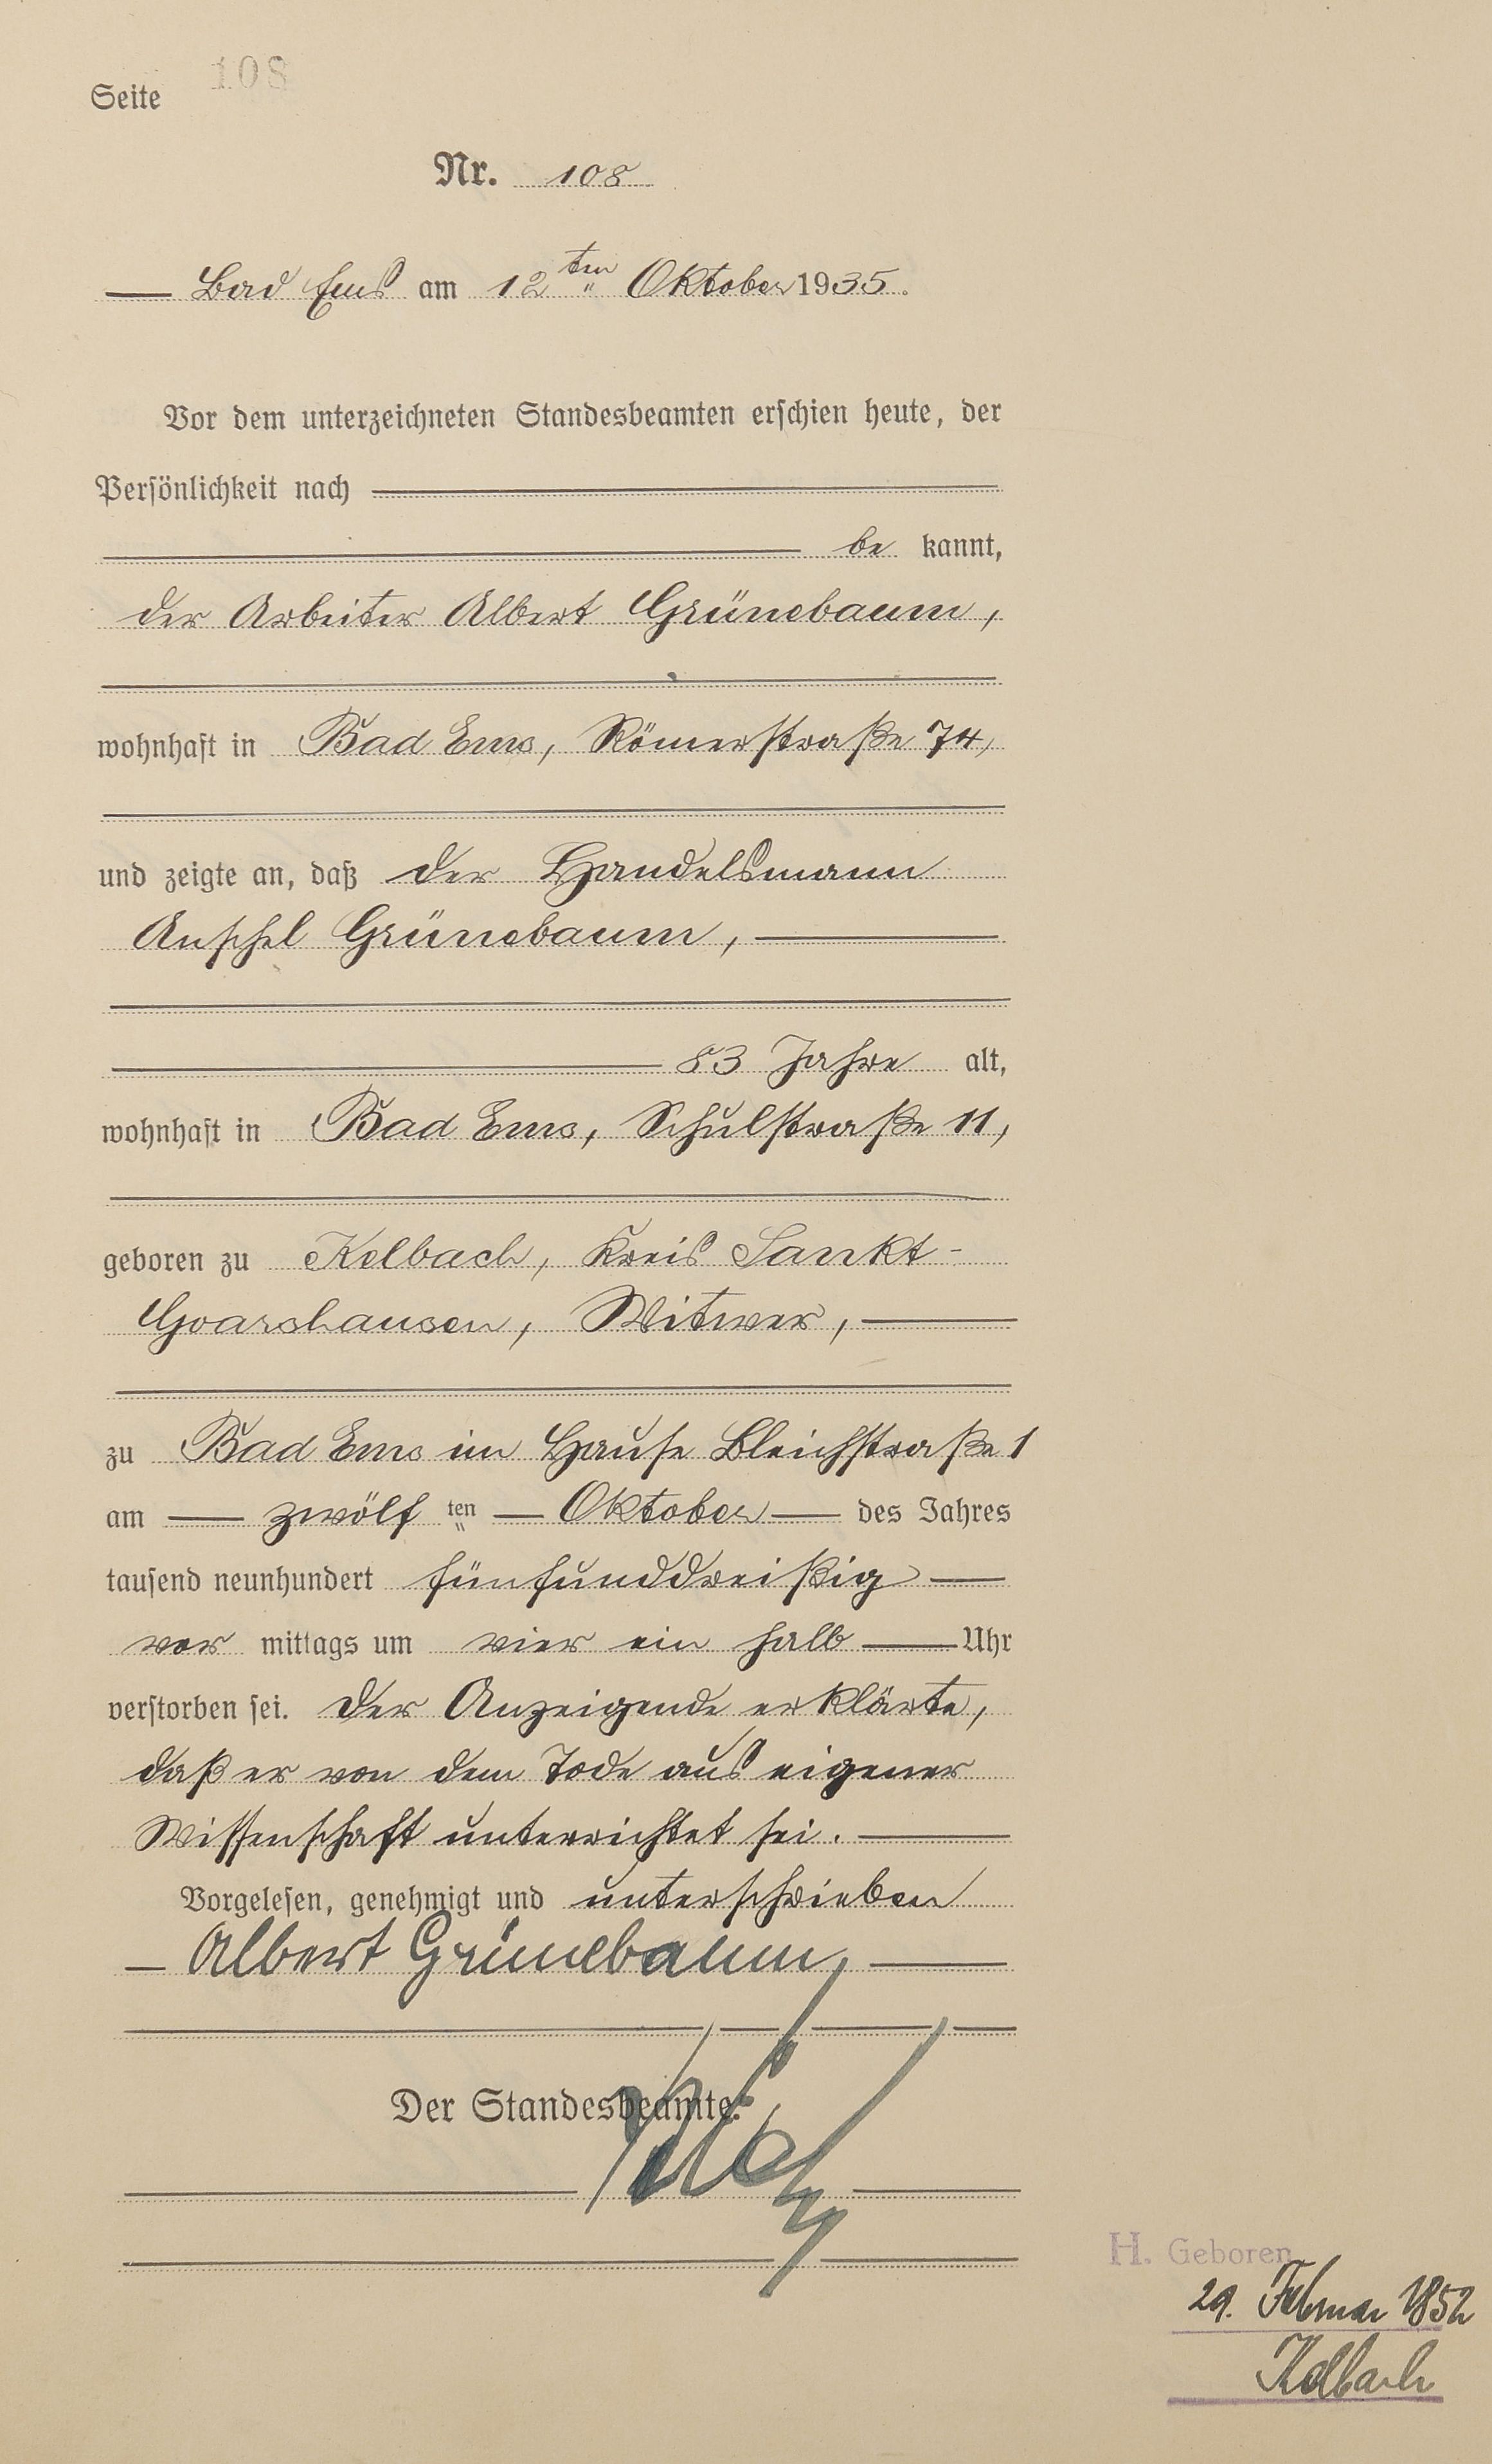 Seite 108
Nr. 108
Bad Ems am 12ten Oktober 1935.
Vor dem unterzeichneten Standesbeamten erschien heute, der
Persönlichkeit nach
be kannt,
der Arbeiter Albert Grünebaum,
wohnhaft in Bad Ems, Römerstraße 74,
und zeigte an, daß der Handelsmann
Anschel Grünebaum,
83 Jahre alt,
wohnhaft in Bad Ems, Schulstraße 11,
geboren zu Kelbach, Kreis Sankt-
Goarshausen, Witwer,
zu Bad Ems im Hause Bleichstraße 1
am zwölf ten Oktober des Jahres
tausend neunhundert fünfunddreißig
vor mittags um vier ein halb Uhr
verstorben sei. Der Anzeigende erklärte,
daß er von dem Tode aus eigener
Wissenschaft unterrichtet sei.
Vorgelesen, genehmigt und unterschrieben
Albert Grünebaum,
Der Standesbeamte:
H. Geboren
29. Februar 1852
Kelbach